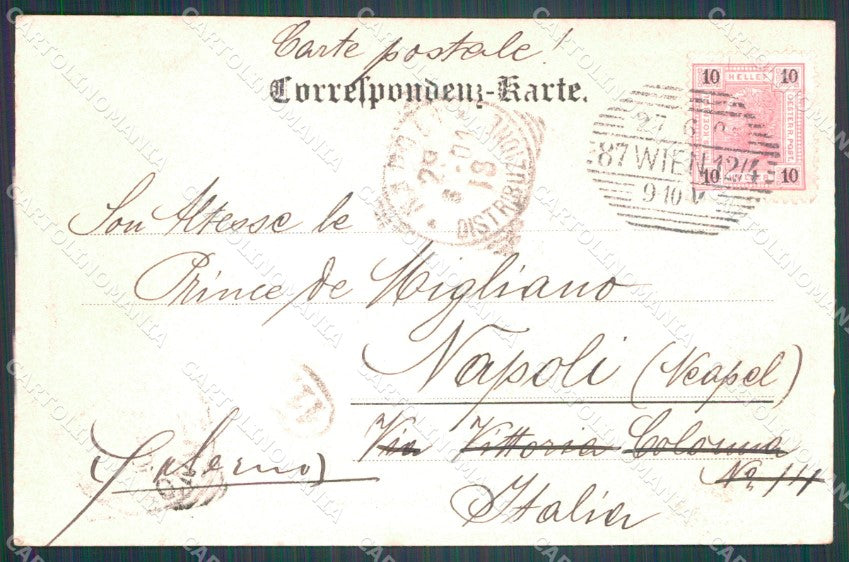 Carte postale!
Correspondenz-Karte.
10 HELLER 10
OESTERR. POST.
10 10
27 6
87 WIEN 12/4
9-10 V
29
01
13
DISTRIBUZIONE
Son Altesse le
Prince de Migliano
Napoli (Neapel)
Via Vittoria Colonna
No 14
Italia
(Salerno)
CARTOLINOMANIA